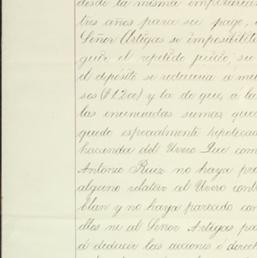 desde la misma
tres años para su pago, 
Señor Artigas se imposibilite
guir el repetido juicio su
el depósito se reduciria á
sos ($1.200) y la de que, á la
las enunciadas sumas que
quedo especialmente hipotecad
hacienda del Uvero Que com
Antonio Ruiz no haya pro
alguno relativo al Uvero cont
blan y no haya parecido con
ellos ni al Señor Artigas pa
á deducir las acciones ó derech